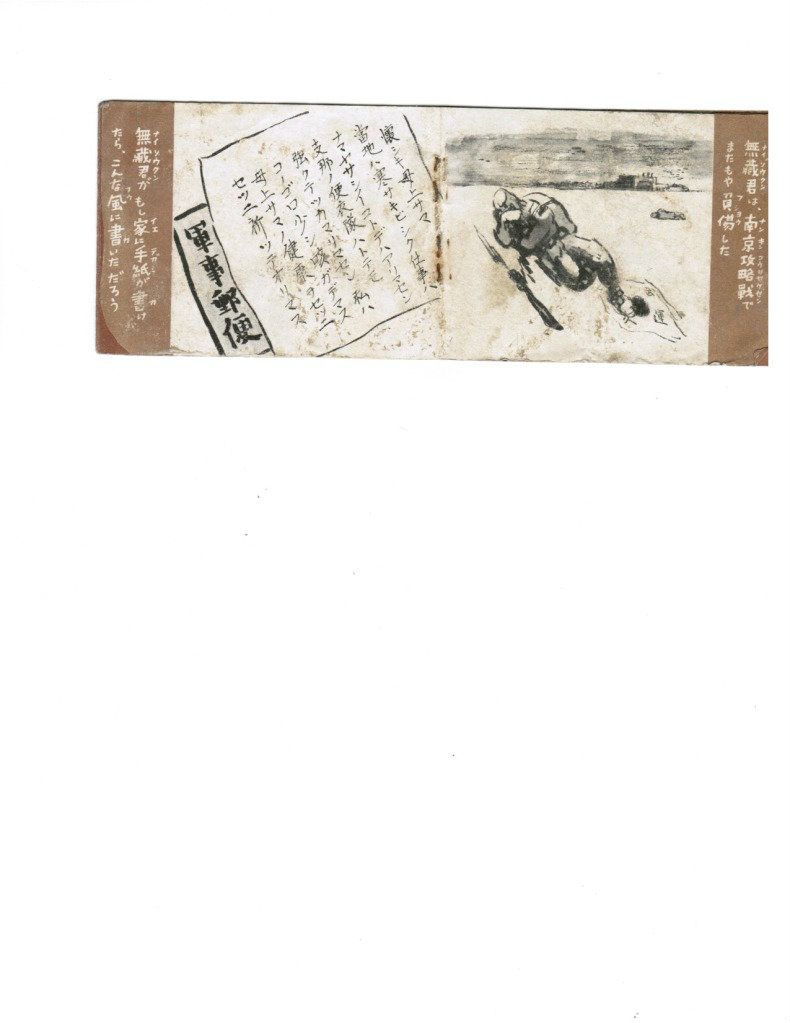 ナイゾウクン ナンキンコウリヤクセン
無蔵君は、南京攻略戦で
フシヨウ
またもや負傷した
武運
懐シキ母上サマ
當地ハ寒サキビシク仕事ハ
ナマヤサシイコトデハアリマセン
支那ノ便衣隊ハトテモ
強クテツカマリマセン 私ハ
咳ガデマス
母上サマノ健康ヲセツニ
セツニ祈ツテオリマス
軍事郵便
ナイゾウクン イエ テガミ カ
無蔵君がもし家に手紙が書け
フウ カ
たら、こんな風に書いただろう